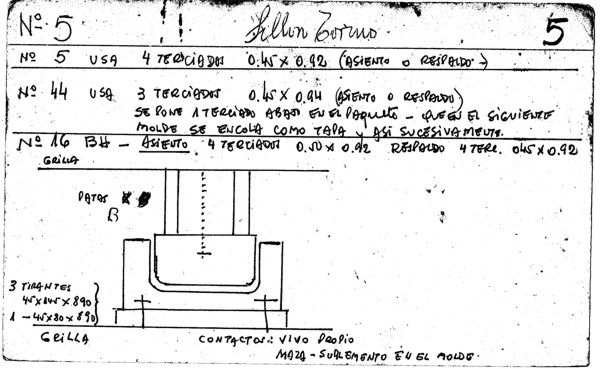 Nº 5 Sillon Torno 5
Nº 5 USA 4 TERCIADOS 0.45 X 0.92 (ASIENTO O RESPALDO)
Nº 44 USA 3 TERCIADOS 0.45 X 0.94 (ASIENTO O RESPALDO)
SE PONE 1 TERCIADO ABAJO EN EL PAQUETE - QUE EN EL SIGUIENTE
MOLDE SE ENCOLA COMO TAPA Y ASI SUCESIVAMENTE.
Nº 16 BH - ASIENTO 4 TERCIADOS 0.50 X 0.92 RESPALDO 4 TERC. 045 X 0.92
GRILLA
PATAS
B
3 TIRANTES
45 X 145 X 890
1 - 45 X 80 X 890
GRILLA
CONTACTOS: VIVO PROPIO
MAZA - SUPLEMENTO EN EL MOLDE.